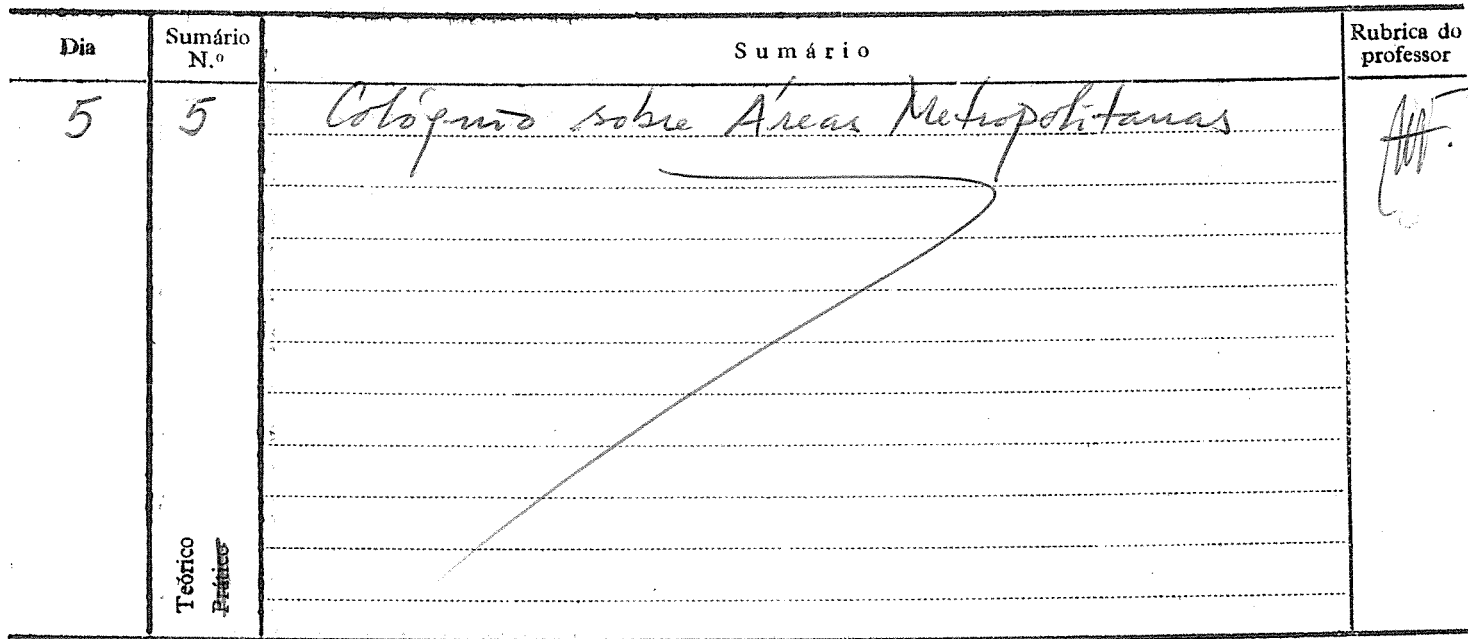 Dia
Sumário N.º
Sumário
Rubrica do professor
5 5 Colóquio sobre Áreas Metropolitanas
Teórico
Prático